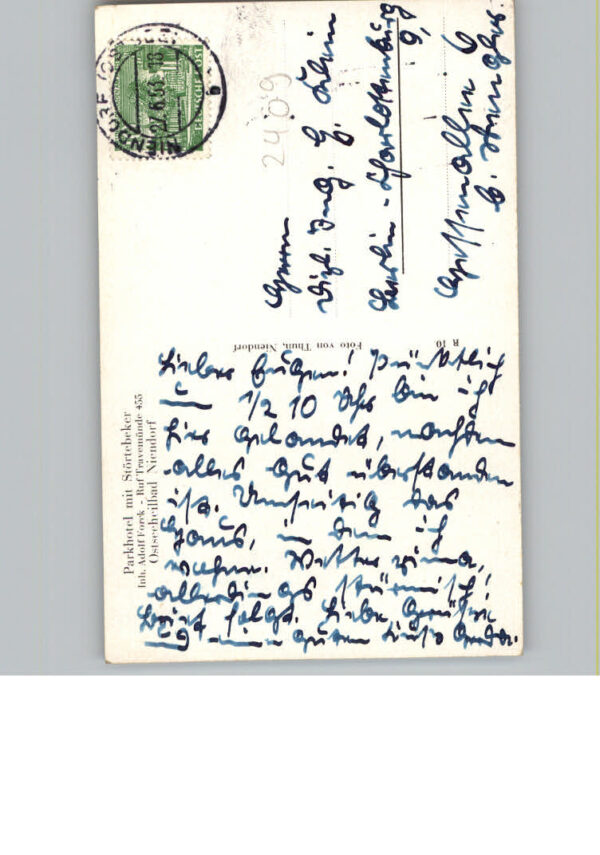 Parkhotel mit Störtebeker
Inh. Adolf Forck - Ruf Travemünde 455
Ostseeheilbad Niendorf
Foto von Thun, Niendorf
R 10
NIENDORF (OSTSEE)
27.6.53.-18
2409
Herrn
Dipl. Ing. E.
Berlin-Charlottenburg
9,
6
b.
Lieber Eugen! Pünktlich
um 1/2 10 Uhr bin ich
hier gelandet, nachdem
alles gut überstanden
ist. Umseitig das
Haus, in dem ich
wohne. Wetter prima,
allerdings stürmisch!
Brief folgt. Liebe Grüße
guten